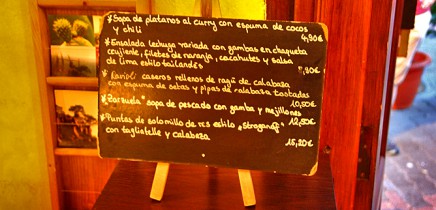 *Sopa de platanos al curry con espuma de cocos
y chili 4,90€
*Ensalada lechuga variada con gambas en chaqueta
crujiente, filetes de naranja, cacahutes y salsa
de lima estilo tailandés ,80€
*Ravioli caseros rellenos de ragú de calabaza
con espuma de setas y pipas de calabaza tostadas
10,50€
*"Zarzuela" sopa de pescado con gamba y mejillones
12,50€
*Puntas de solomillo de res estilo „Stroganoff"
con tagliatelle y calabaza 15,20€